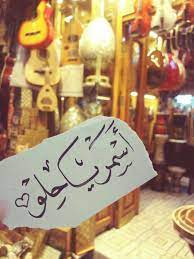 أسمر يا حلو